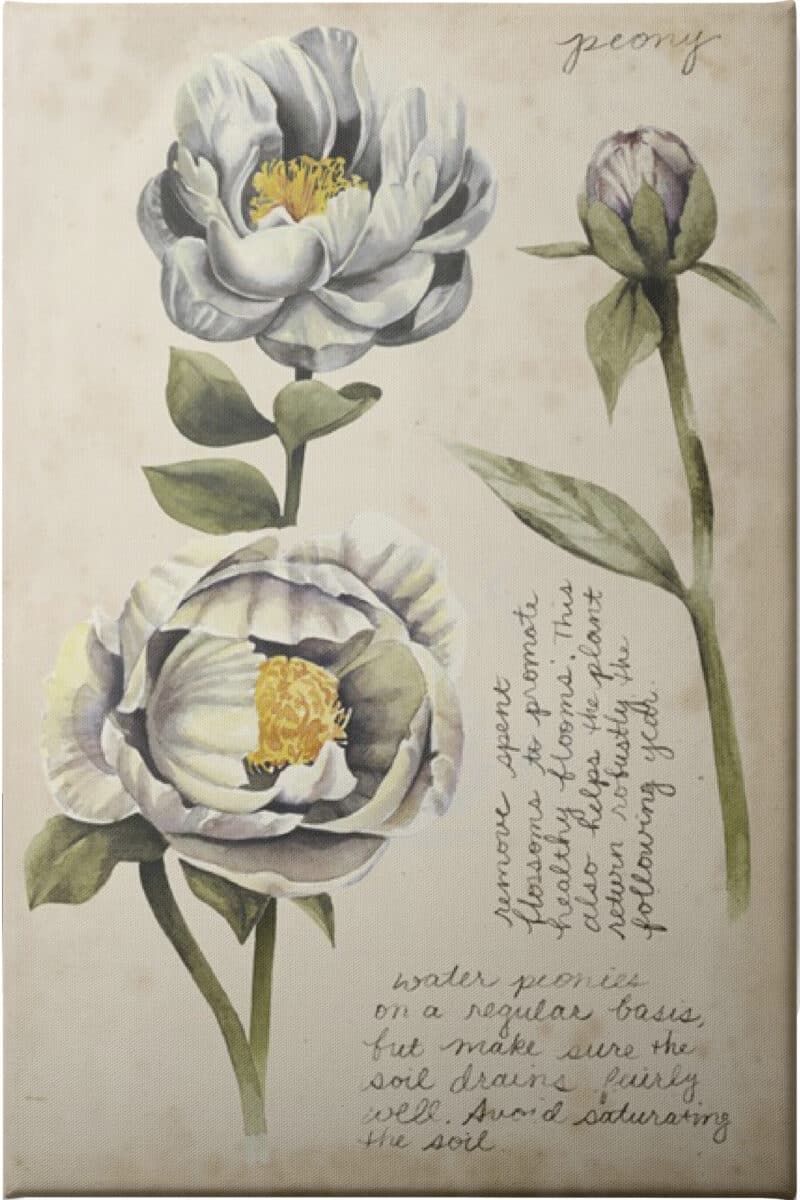 peony
remove spent
flossoms to promote
healthy blooms. This
also helps the plant
return robustly the
following year.
water peonies
on a regular basis,
but make sure the
soil drains fairly
well. Avoid saturating
the soil